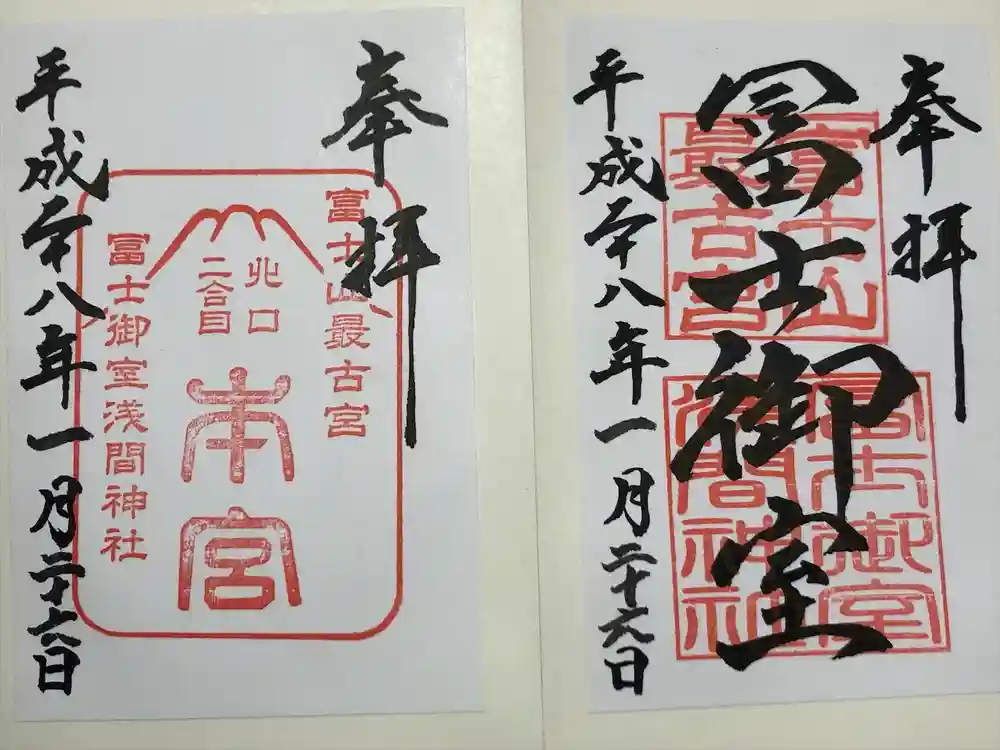 奉拝
富士山
最古宮
冨士御室
冨士御室
浅間神社
平成二十八年一月二十六日
奉拝
富士山最古宮
北口
二合目
本宮
冨士御室浅間神社
平成二十八年一月二十六日